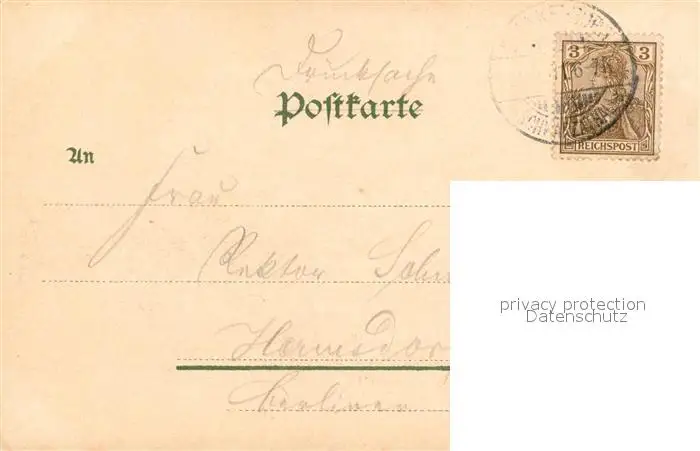 Drucksache
Postkarte
3 3
REICHSPOST
An
Frau
Rektor
Hermsdor
Berliner
privacy protection
Datenschutz